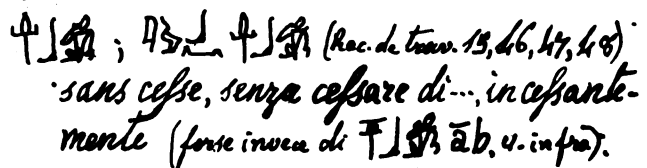 ; (Rec. de trav. 19, 46, 47, 48)
sans cesse, senza cessare di..., incessante-
mente (forse invece di āb, v. infra).